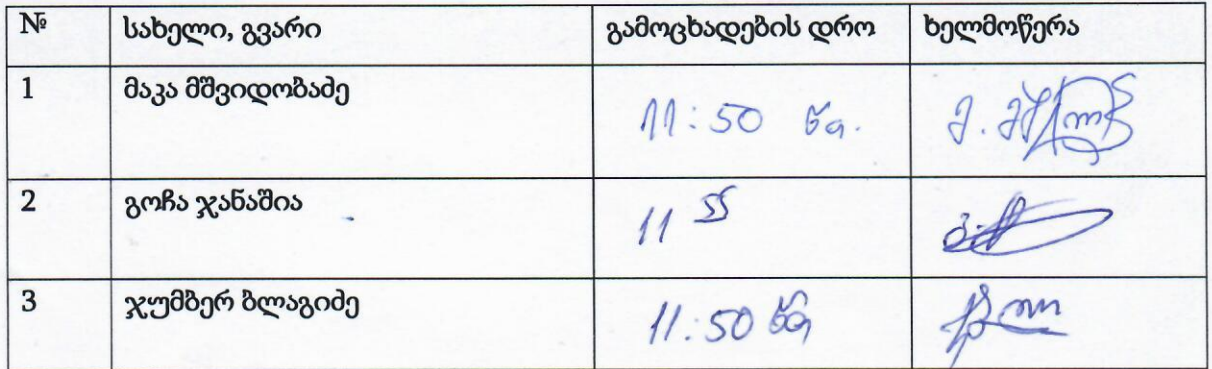 № სახელი, გვარი გამოცხადების დრო ხელმოწერა
1 მაკა მშვიდობაძე 11:50 წთ.
2 გოჩა ჯანაშია 11 55
3 ჯუმბერ ბლაგიძე 11:50 წთ